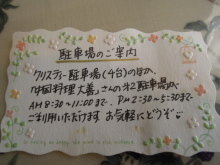 駐車場のご案内
クリスティー駐車場(4台)のほか、
「中国料理 大善」さんの水2駐車場が
AM 8:30~11:00まで、PM 2:30~5:30まで
ご利用いただけます お気軽にどうぞ